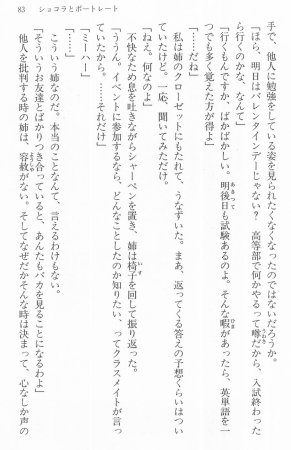 83　ショコラとポートレート
手で、他人に勉強をしている姿を見られたくなくなったのではないだろうか。
「ほら、明日はバレンタインデーじゃない？　高等部で何かやるって噂だから、入試終わった
ら行くのかな、なんて」
「行くもんですか、ばかばかしい。明後日も試験あるのよ。そんな暇があったら、英単語を一
つでも多く覚えた方が得よ」
「……だね」
私は姉のクローゼットにもたれて、うなずいた。まあ、返ってくる答えの予想くらいはつい
ていたけど。一応、聞いてみただけ。
「ねえ。何なのよ」
不快なため息を吐きながらシャーペンを置き、姉は椅子を回して振り返った。
「ううん。イベントに参加するなら、どんなことしたのか知りたい、ってクラスメイトが言っ
ていたから。……それだけ」
「ミーハー」
「……」
こういう姉なのだ。本当のことなんて、言えるわけもない。
「そういうお友達とばかりつき合っていると、あんたもバカを見ることになるわよ」
他人を批判する時の姉は、容赦がない。そしてなぜだかそんな時は決まって、心なしか声の